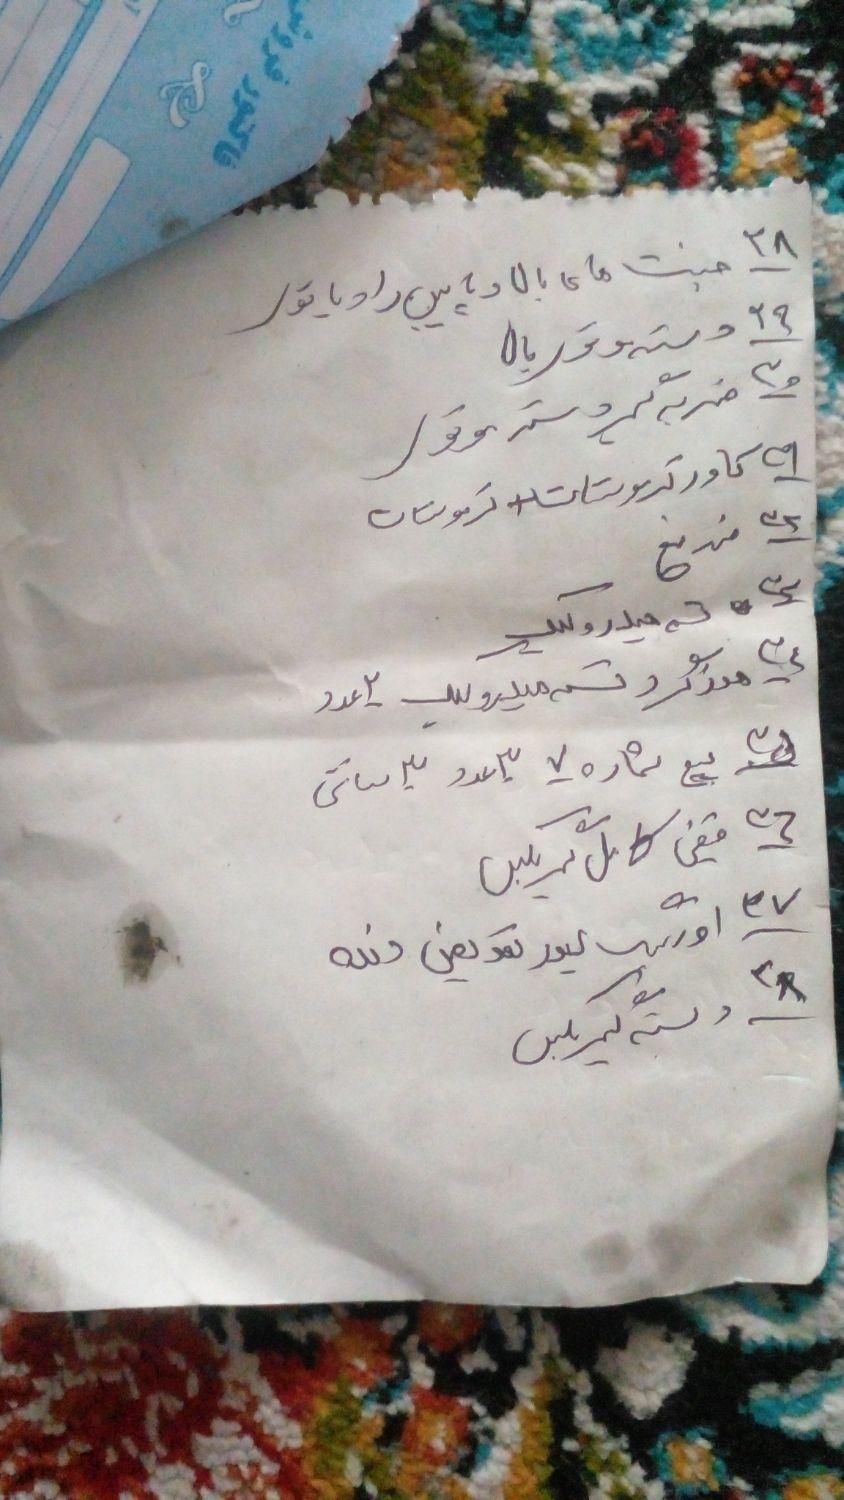 فاکتور فروش
۲۸ جفت های بالا و پایین رادیاتور
۲۹ دسته موتور بالا
۳۰ ضربه گیر دسته موتور
۳۱ کاور ترموستات + ترموستات
۳۲ ضد یخ
۳۳ تسمه هیدرولیک
۳۴ هوزگرد تسمه هیدرولیک ۲ عدد
۳۵ پیچ شماره ۷ ۳ عدد ۳ سانتی
۳۶ قیفی کامل گیربکس
۳۷ اورینگ لیور تعویض دنده
۳۸ دسته گیربکس